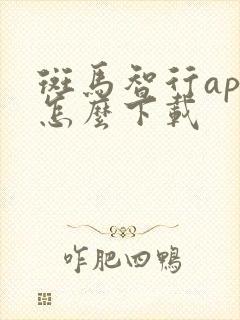 斑馬智行ap
怎麼下載
咋肥四鴨